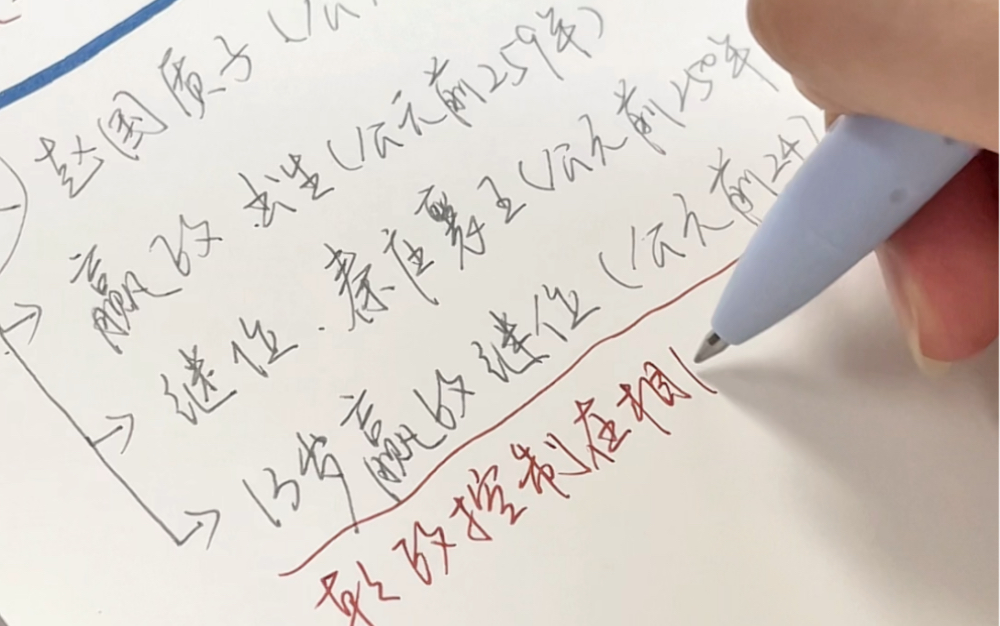 赵国质子（公
嬴政 出生（公元前259年）
继位 . 秦庄襄王（公元前250年
13岁嬴政继位（公元前247
政控制在相